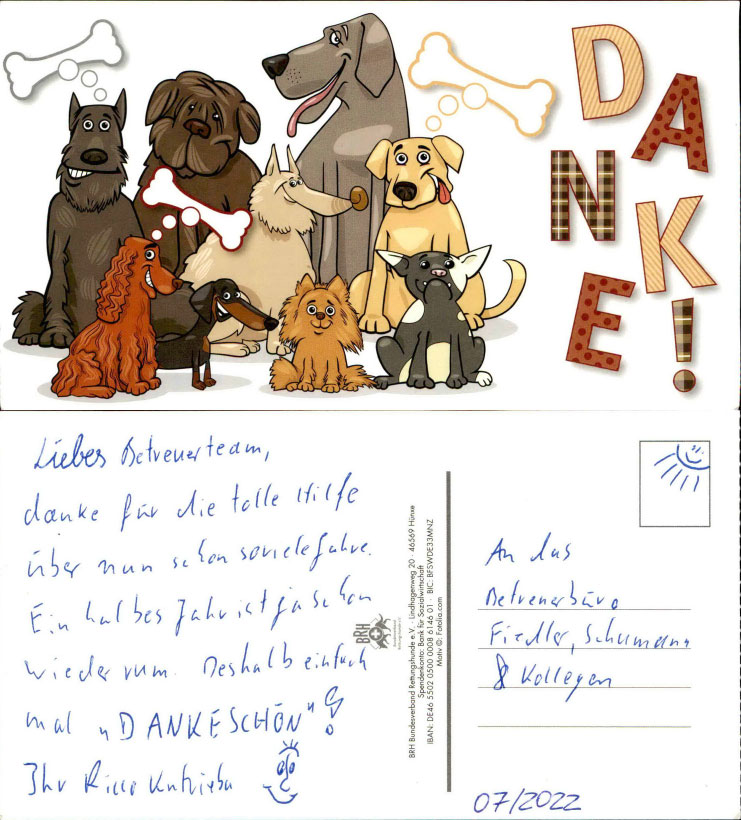 DANKE!
Liebes Betreuerteam,
danke für die tolle Hilfe
über nun schon soviele Jahre.
Ein halbes Jahr ist ja schon
wieder rum. Deshalb einfach
mal „DANKESCHÖN"!
Ihr Ricco
BRH
BRH Bundesverband Rettungshunde e.V. · Lindhagenweg 20 · 46569 Hünxe
Spendenkonto: Bank für Sozialwirtschaft
IBAN: DE46 5502 0500 0008 6146 01 · BIC: BFSWDE33MNZ
Motiv ©: Fotolia.com
An das
Betreuerbüro
Fiedler, Schumann
& Kollegen
07/2022